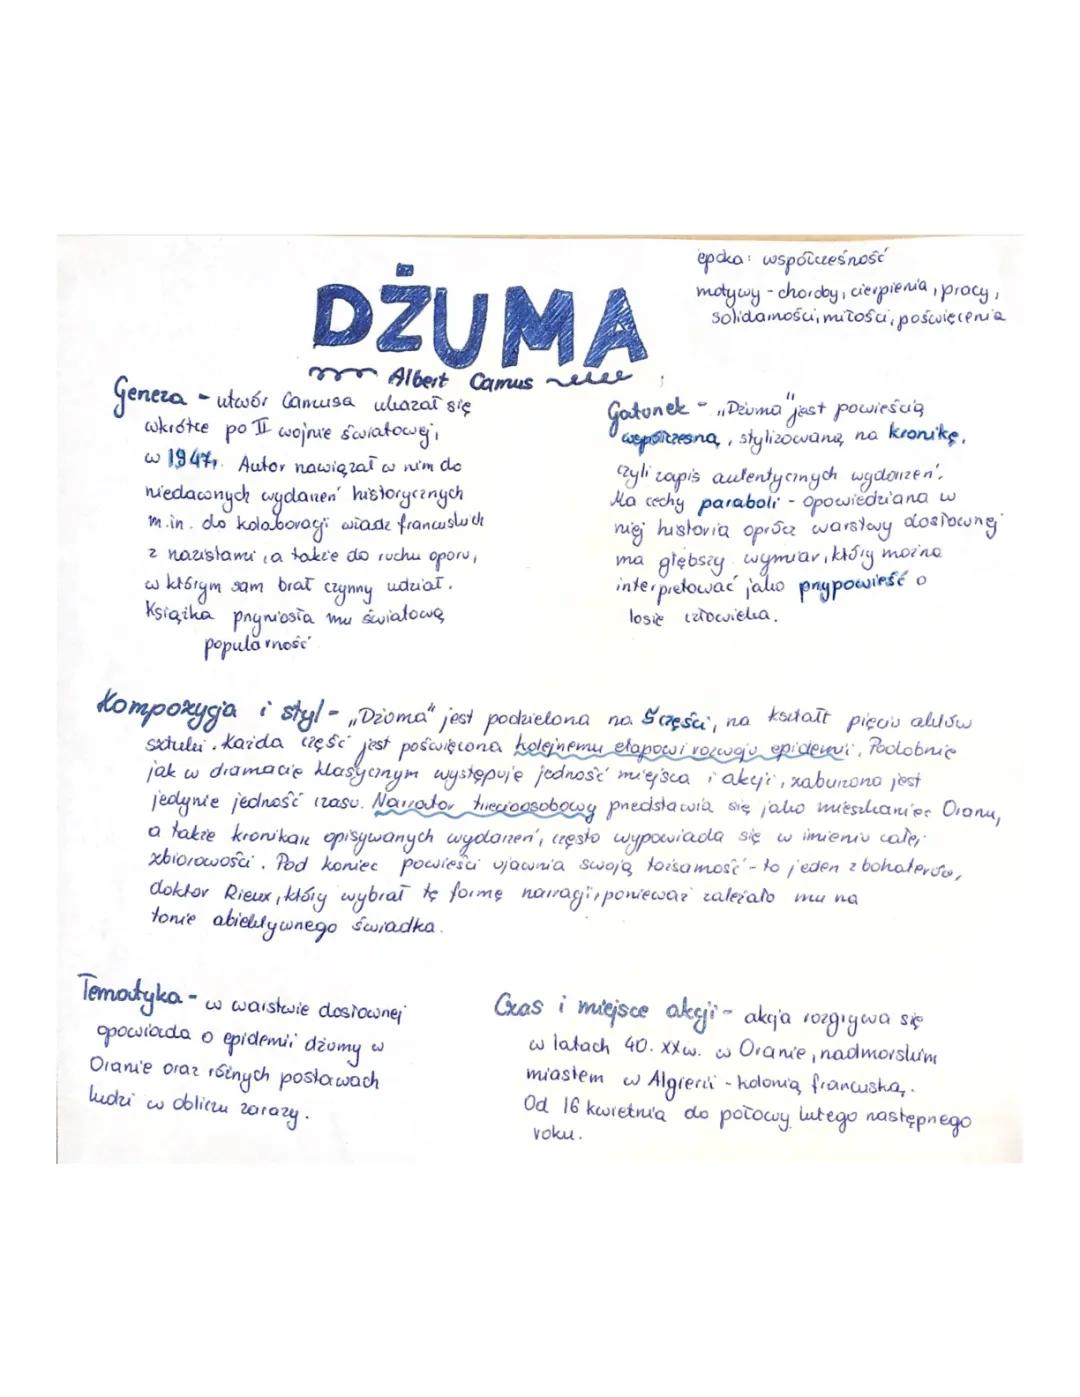 DŻUMA
Albert Camus
epoka: współcześność
motywy - choroby, cierpienia, pracy,
solidarności, miłości, poświęcenia
Geneza - utwór Camusa ukazał się
wkrótce po II wojnie światowej,
w 1947r. Autor nawiązał w nim do
niedawnych wydarzeń historycznych
m.in. do kolaboracji władz francuskich
z nazistami, a także do ruchu oporu,
w którym sam brał czynny udział.
Książka przyniosła mu światową
popularność
Gatunek - "Dżuma" jest powieścią
współczesną, stylizowaną na kronikę,
czyli zapis autentycznych wydarzeń.
Ma cechy paraboli - opowiedziana w
niej historia oprócz warstwy dosłownej
ma głębszy wymiar, który można
interpretować jako przypowieść o
losie człowieka.
Kompozycja i styl - "Dżuma" jest podzielona na 5 części, na kształt pięciu aktów
sztuki. Każda część jest poświęcona kolejnemu etapowi rozwoju epidemii. Podobnie
jak w dramacie klasycznym występuje jedność miejsca i akcji, zaburzona jest
jedynie jedność czasu. Narrator trzecioosobowy przedstawia się jako mieszkaniec Oranu,
a także kronikarz opisywanych wydarzeń, często wypowiada się w imieniu całej
zbiorowości. Pod koniec powieści ujawnia swoją tożsamość - to jeden z bohaterów,
doktor Rieux, który wybrał tę formę narracji, ponieważ zależało mu na
tonie obiektywnego świadka.
Tematyka - w warstwie dosłownej
opowiada o epidemii dżumy w
Oranie oraz różnych postawach
ludzi w obliczu zarazy.
Czas i miejsce akcji - akcja rozgrywa się
w latach 40. XX w. w Oranie, nadmorskim
miastem w Algierii - kolonią francuską.
Od 16 kwietnia do połowy lutego następnego
roku.